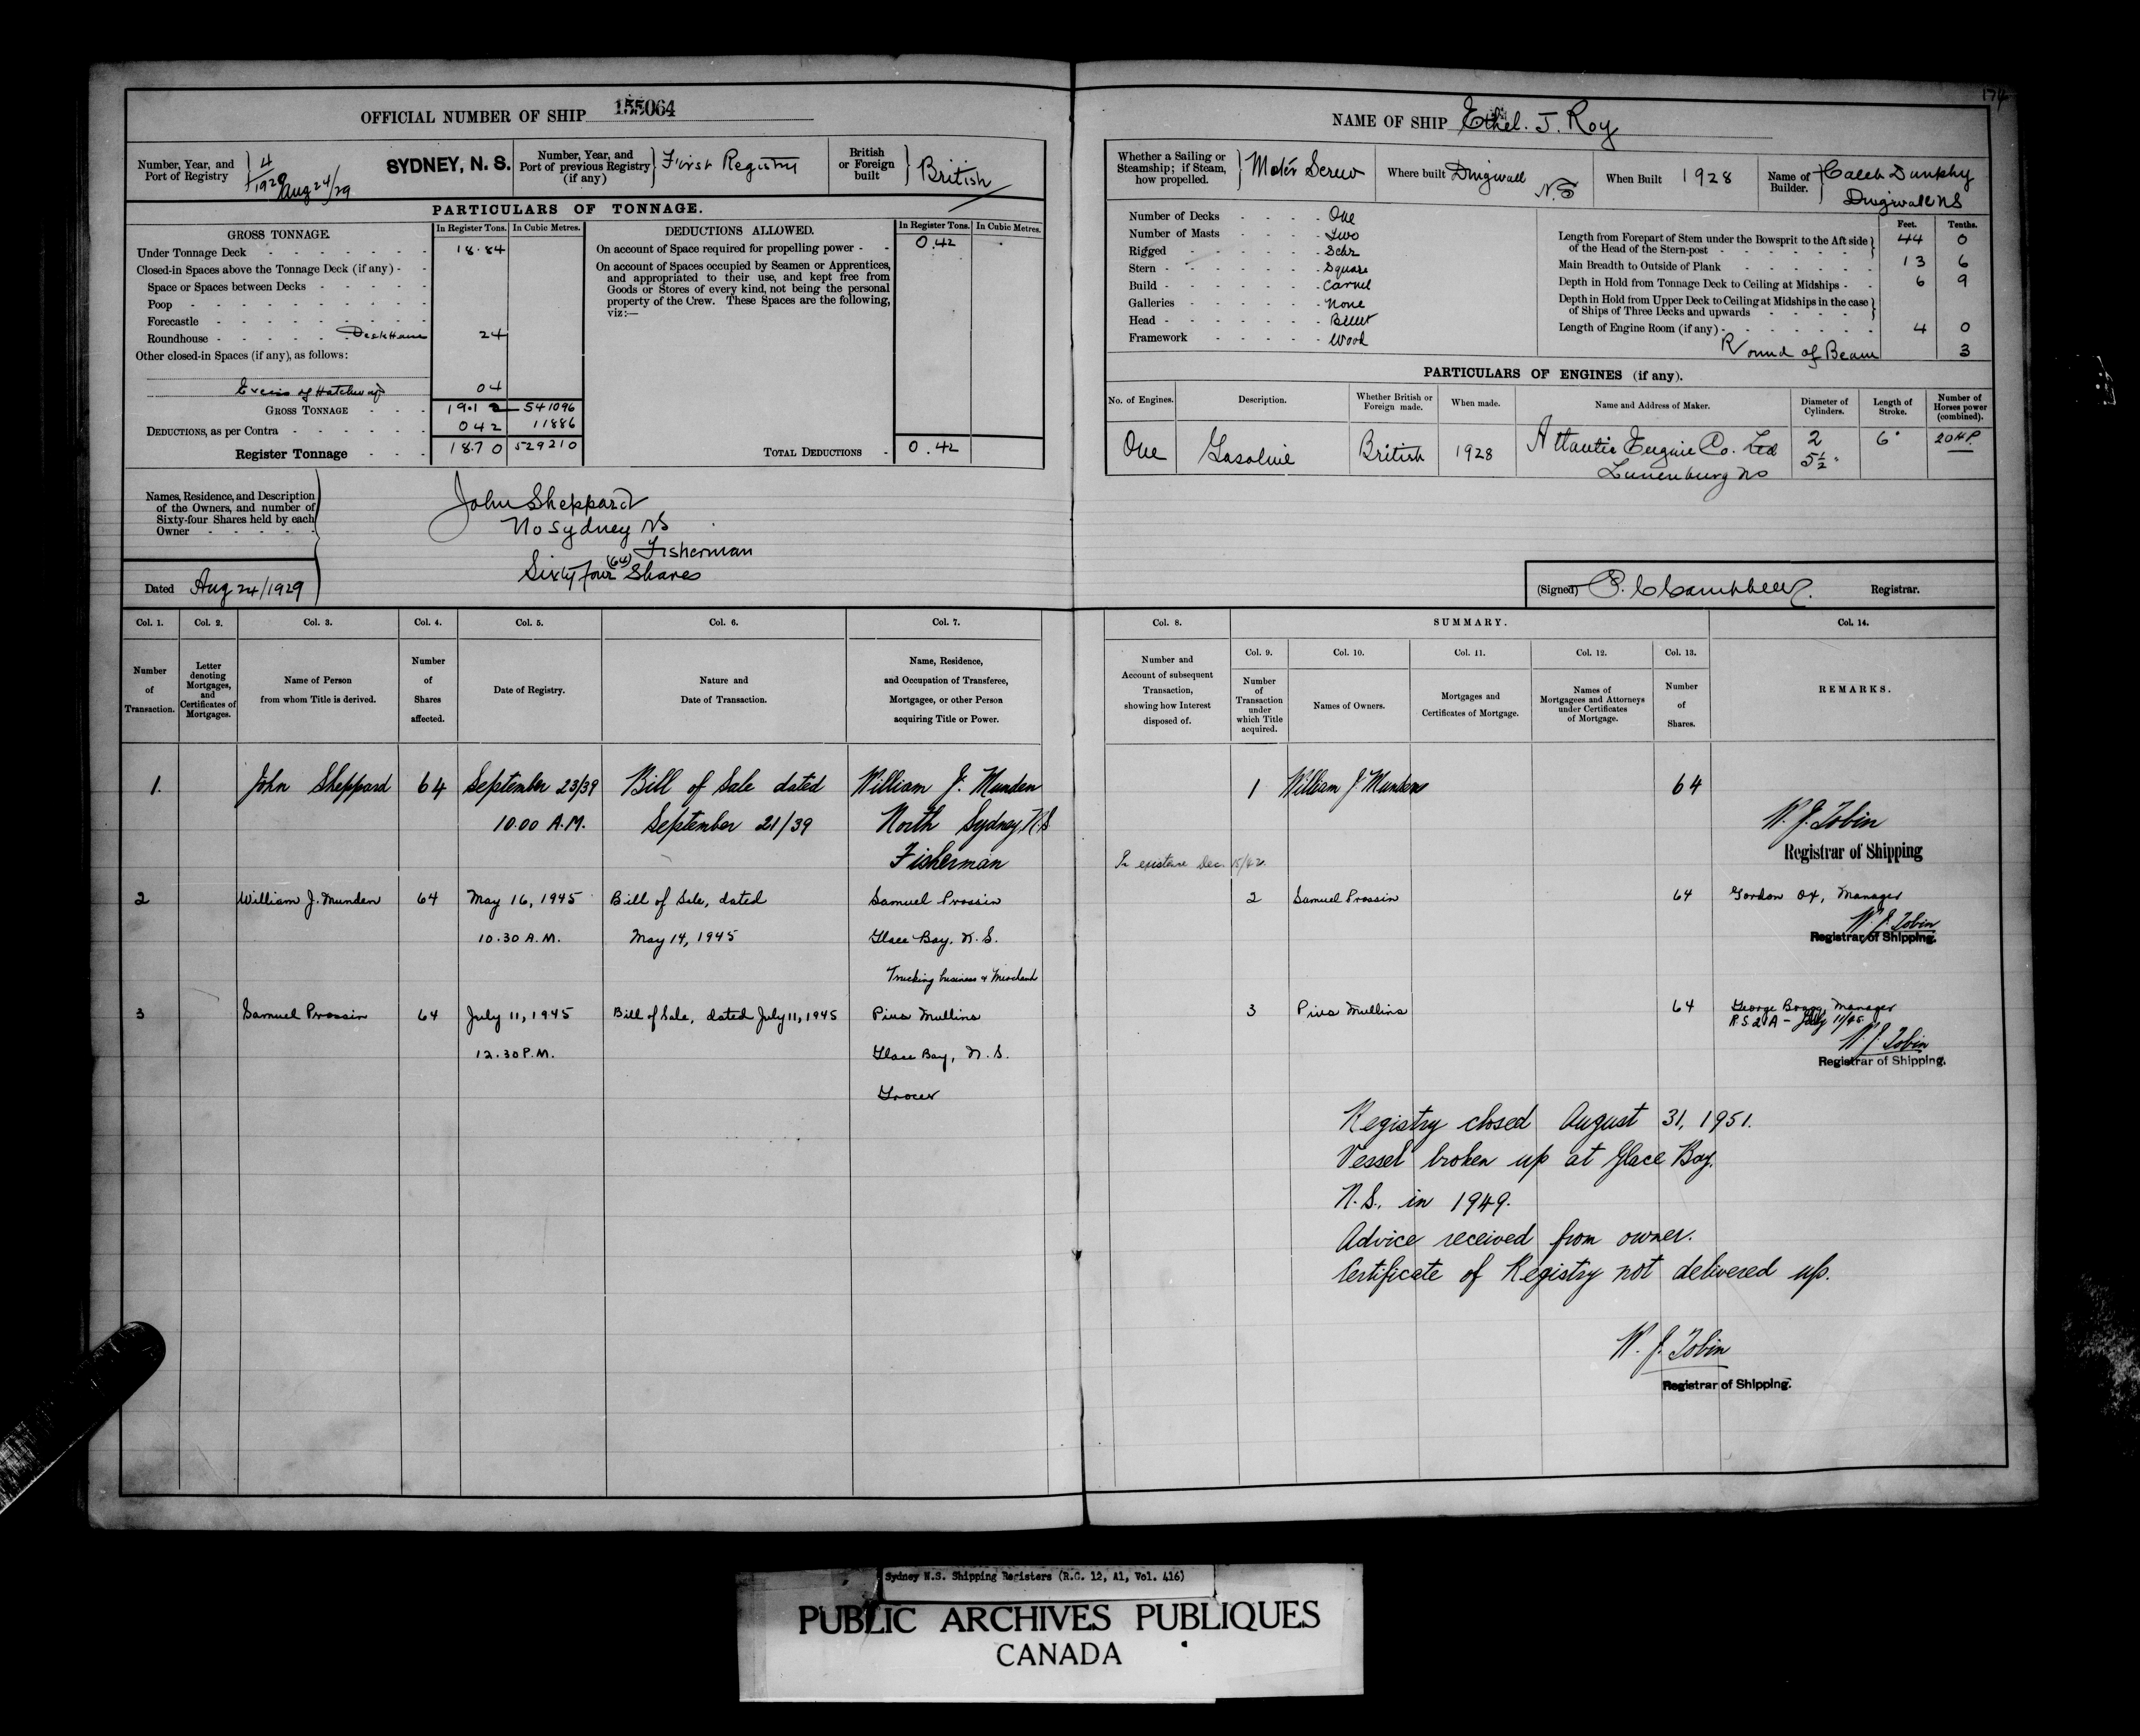 174
OFFICIAL NUMBER OF SHIP 155064
Number, Year, and Port of Registry 4/1929 Aug 24/29 SYDNEY, N. S.
Number, Year, and Port of previous Registry (if any) First Registry
British or Foreign built British
PARTICULARS OF TONNAGE.
GROSS TONNAGE. In Register Tons. In Cubic Metres.
Under Tonnage Deck 18.84
Closed-in Spaces above the Tonnage Deck (if any)
Space or Spaces between Decks
Poop
Forecastle
Roundhouse Deck House 24
Other closed-in Spaces (if any), as follows:
Excess of Hatchways 04
GROSS TONNAGE 19.12 541096
DEDUCTIONS, as per Contra 042 11886
Register Tonnage 18.70 529210
DEDUCTIONS ALLOWED. In Register Tons. In Cubic Metres.
On account of Space required for propelling power 0.42
On account of Spaces occupied by Seamen or Apprentices,
and appropriated to their use, and kept free from
Goods or Stores of every kind, not being the personal
property of the Crew. These Spaces are the following,
viz:—
TOTAL DEDUCTIONS 0.42
Names, Residence, and Description
of the Owners, and number of
Sixty-four Shares held by each
Owner
John Sheppard
No Sydney NS
Fisherman
Sixty four (64) Shares
Dated Aug 24/1929
NAME OF SHIP Ethel. J. Roy
Whether a Sailing or Steamship; if Steam, how propelled. Motor Screw
Where built Dingwall N.S
When Built 1928
Name of Builder. Caleb Dunphy Dingwall NS
Number of Decks One
Number of Masts Two
Rigged Schr
Stern Square
Build Carvel
Galleries None
Head Billet
Framework Wood
Feet. Tenths.
Length from Forepart of Stem under the Bowsprit to the Aft side of the Head of the Stern-post 44 0
Main Breadth to Outside of Plank 13 6
Depth in Hold from Tonnage Deck to Ceiling at Midships 6 9
Depth in Hold from Upper Deck to Ceiling at Midships in the case of Ships of Three Decks and upwards
Length of Engine Room (if any) 4 0
Round of Beam 3
PARTICULARS OF ENGINES (if any).
No. of Engines. Description. Whether British or Foreign made. When made. Name and Address of Maker. Diameter of Cylinders. Length of Stroke. Number of Horses power (combined).
One Gasoline British 1928 Atlantic Engine Co. Ltd 2 6" 20 H.P.
Lunenburg NS 5½"
(Signed) Registrar.
Col. 1. Col. 2. Col. 3. Col. 4. Col. 5. Col. 6. Col. 7.
Number of Transaction.
Letter denoting Mortgages, and Certificates of Mortgages.
Name of Person from whom Title is derived.
Number of Shares affected.
Date of Registry.
Nature and Date of Transaction.
Name, Residence, and Occupation of Transferee, Mortgagee, or other Person acquiring Title or Power.
1. John Sheppard 64 September 23/39 Bill of Sale dated William J. Munden
10.00 A.M. September 21/39 North Sydney, N.S
Fisherman
2 William J. Munden 64 May 16, 1945 Bill of Sale, dated Samuel Prossin
10.30 A.M. May 14, 1945 Glace Bay, N.S.
Trucking business & Merchant
3 Samuel Prossin 64 July 11, 1945 Bill of Sale, dated July 11, 1945 Pius Mullins
12.30 P.M. Glace Bay, N.S.
Grocer
Col. 8. SUMMARY. Col. 14.
Col. 9. Col. 10. Col. 11. Col. 12. Col. 13.
Number and Account of subsequent Transaction, showing how Interest disposed of.
Number of Transaction under which Title acquired.
Names of Owners.
Mortgages and Certificates of Mortgage.
Names of Mortgagees and Attorneys under Certificates of Mortgage.
Number of Shares.
REMARKS.
1 William J Munden 64
W. J. Tobin
Registrar of Shipping
In existence Dec. 15/42.
2 Samuel Prossin 64 Gordon Manager
W. J. Tobin
Registrar of Shipping.
3 Pius Mullins 64 George Manager
July 11/45
W. J. Tobin
Registrar of Shipping.
Registry closed August 31, 1951.
Vessel broken up at Glace Bay,
N.S., in 1949.
Advice received from owner.
Certificate of Registry not delivered up.
W. J. Tobin
Registrar of Shipping.
Sydney N.S. Shipping Registers (R.G. 12, A1, Vol. 416)
PUBLIC ARCHIVES PUBLIQUES
CANADA